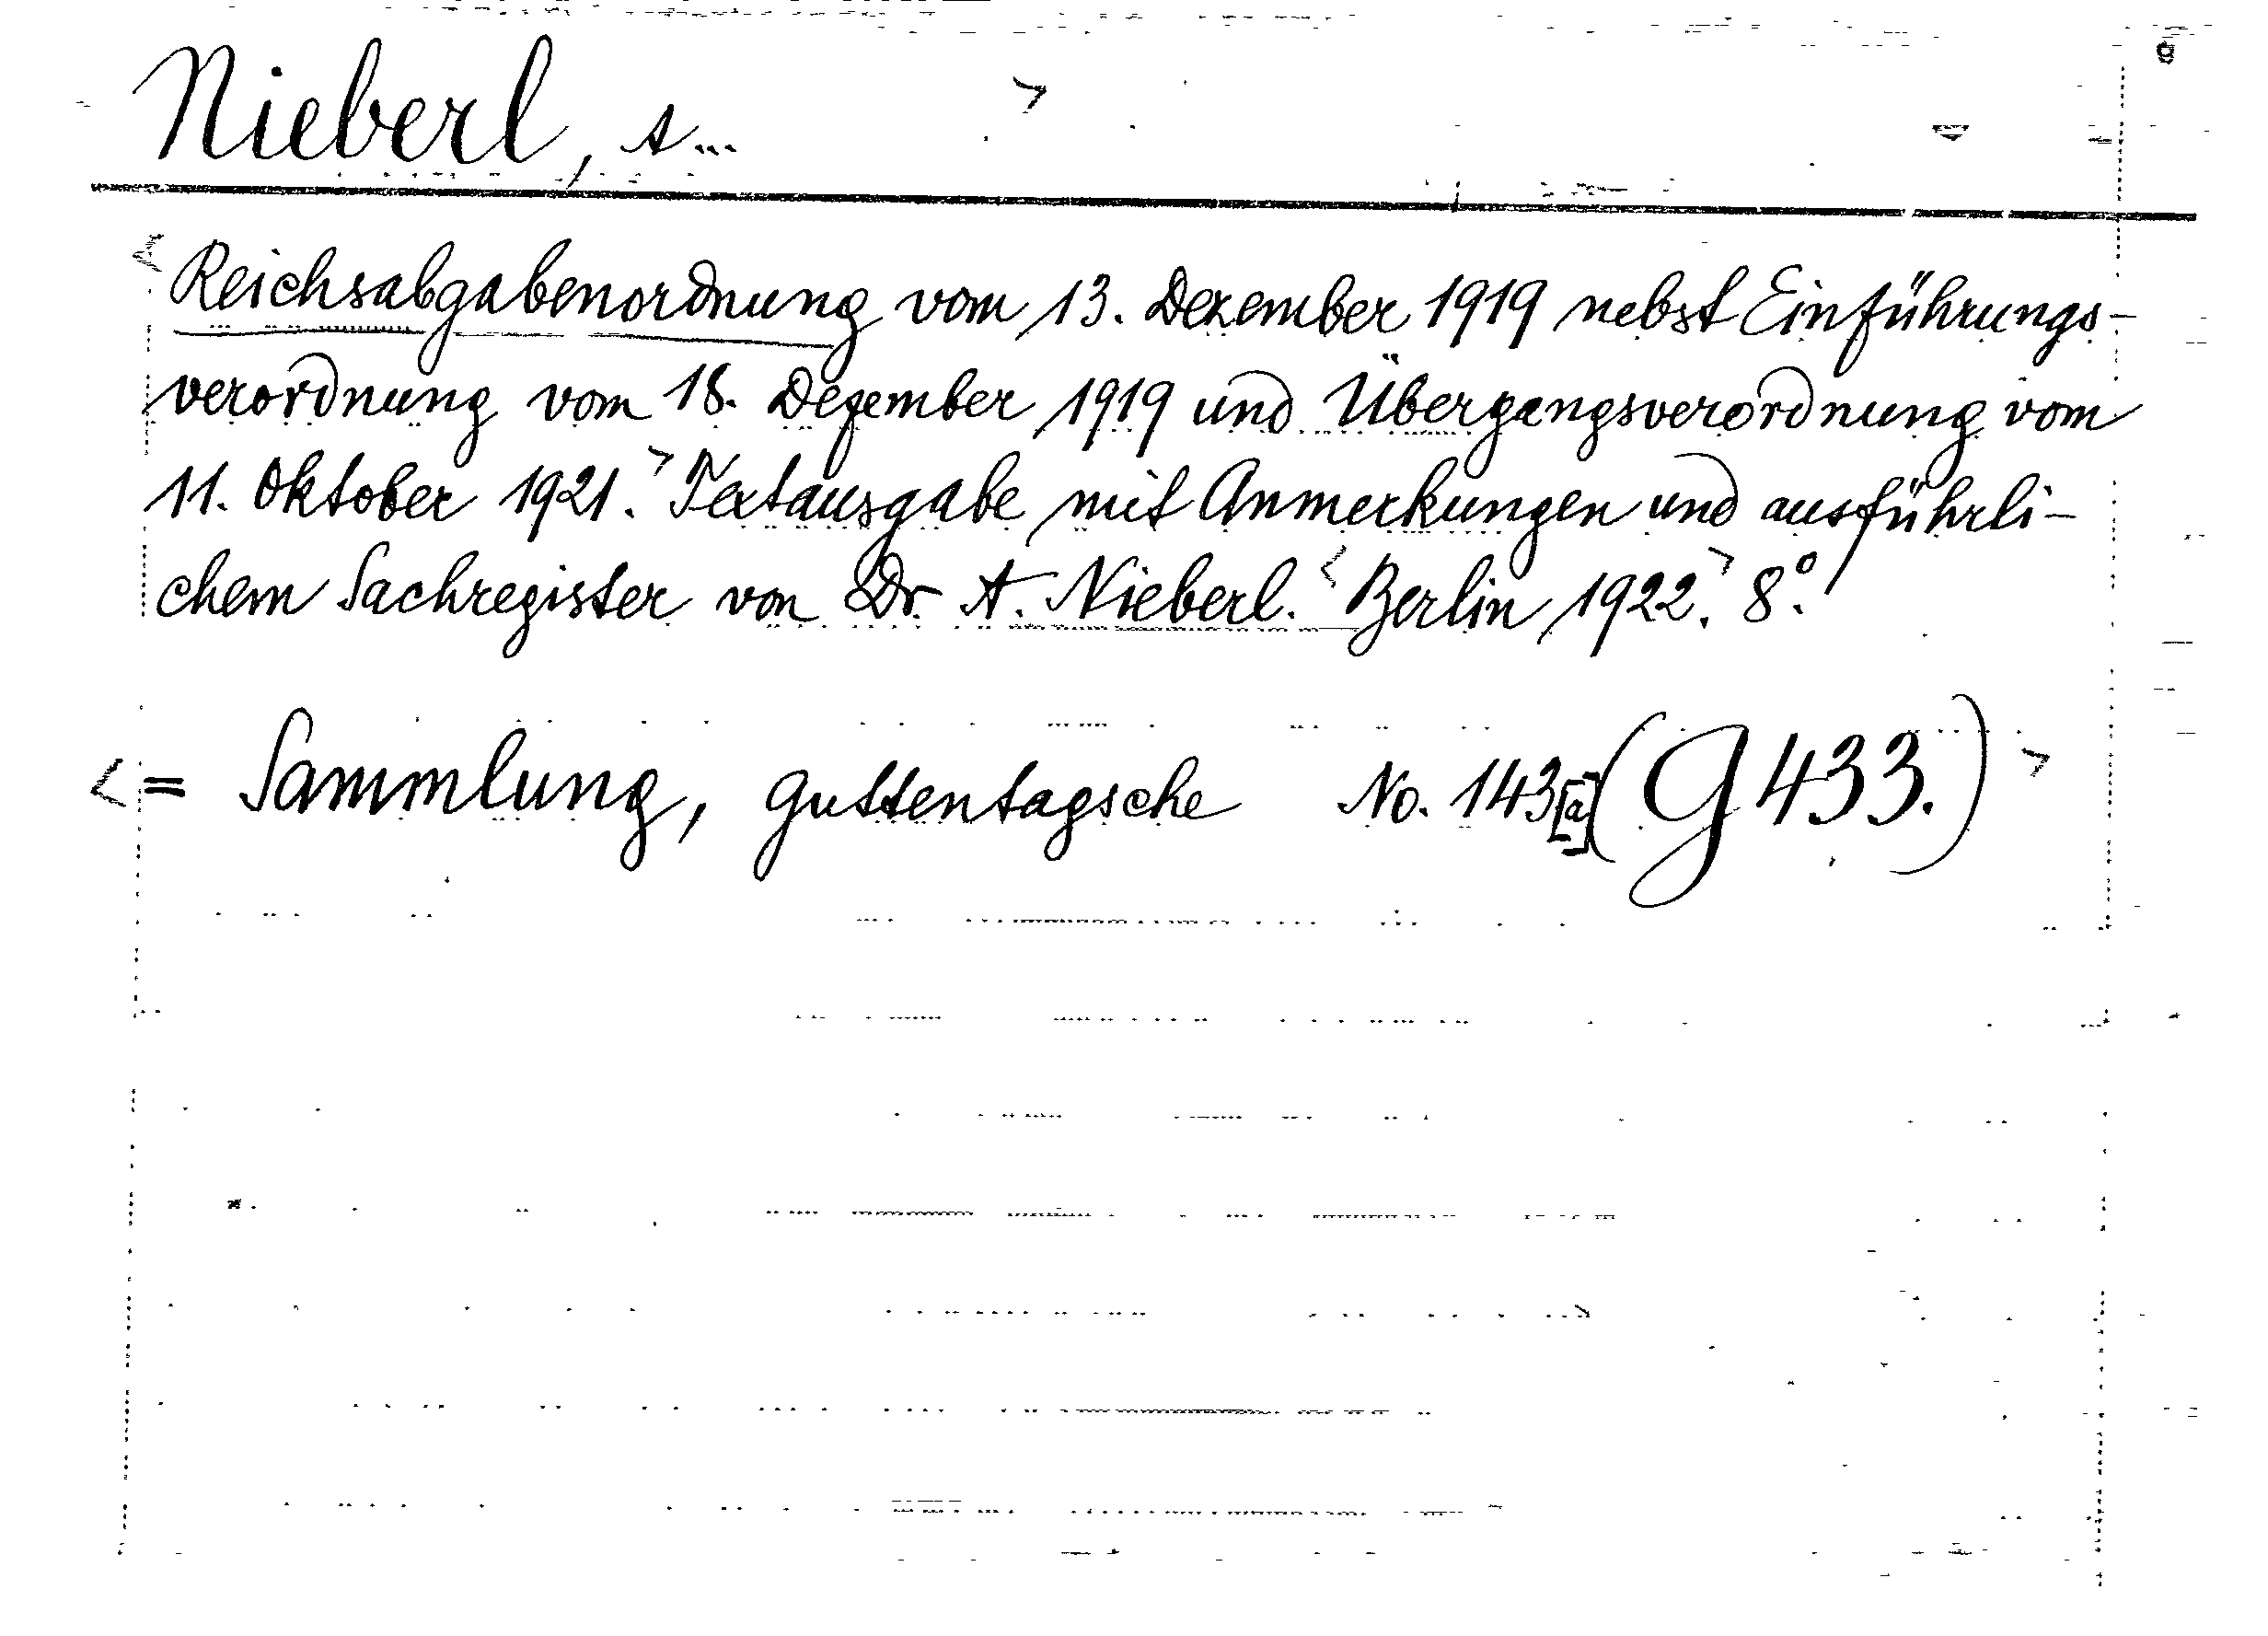 Nieberl, A...
Reichsabgabenordnung vom 13. Dezember 1919 nebst Einführungs-
verordnung vom 18. Dezember 1919 und Übergangsverordnung vom
11. Oktober 1921. Textausgabe mit Anmerkungen und ausführli-
chem Sachregister von Dr. A. Nieberl. Berlin 1922. 8°.
= Sammlung, Guttentagsche No. 143[a] (G 433.)